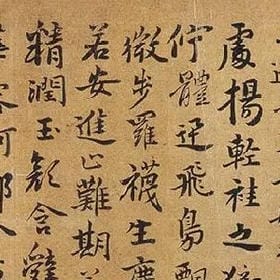 處揚輕袿之猗
佇體迅飛鳧
微步羅襪生塵
若安進止難期若
精潤玉顏含辭
容阿那